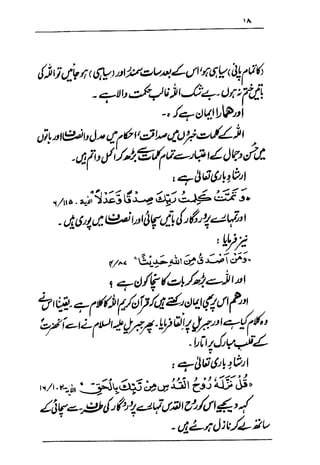 ۱۸
(کا تمام پانی) سیاہی ہو، اس کے بعد سات سمندر اور (سیاہی) ہو جائیں تو اللہ کی
باتیں ختم نہ ہوں۔ بے شک اللہ غالب حکمت والا ہے۔
اور ہمارا ایمان ہے کہ:-
اللہ کے کلمات خبروں میں صداقت، احکام میں عدل و انصاف اور باتوں
میں حسن و جمال کے اعتبار سے تمام کلمات سے بڑھ کر اکمل و اتم ہیں۔
ارشادِ باری تعالیٰ ہے:
"وَ تَمَّتْ كَلِمَتُ رَبِّكَ صِدْقًا وَّعَدْلًا" الآیۃ۔ ۶/۱۱۵
اور تمہارے پروردگار کی باتیں سچائی اور انصاف میں پوری ہیں۔
نیز فرمایا:
"وَمَنْ أَصْدَقُ مِنَ اللهِ حَدِيثًا" ۴/۸۷
اور اللہ سے بڑھ کر بات کا سچا کون ہے ؟
اور ہم اس پر بھی ایمان رکھتے ہیں کہ قرآن کریم اللہ کا کلام ہے۔ یقیناً اس نے
وہ کلام کیا ہے اور جبریل پر القا فرمایا۔ پھر جبریل علیہ السلام نے اسے آنحضرت
کے قلب مبارک پر اتارا۔
ارشادِ باری تعالیٰ ہے:
"قُلْ نَزَّلَهُ رُوحُ الْقُدُسِ مِنْ رَّبِّكَ بِالْحَقِّ" الآیۃ ۱۶/۱۰۲
کہہ دیجیے اس کو روح القدس تمہارے پروردگار کی طرف سے سچائی کے
ساتھ لے کر نازل ہوئے ہیں۔